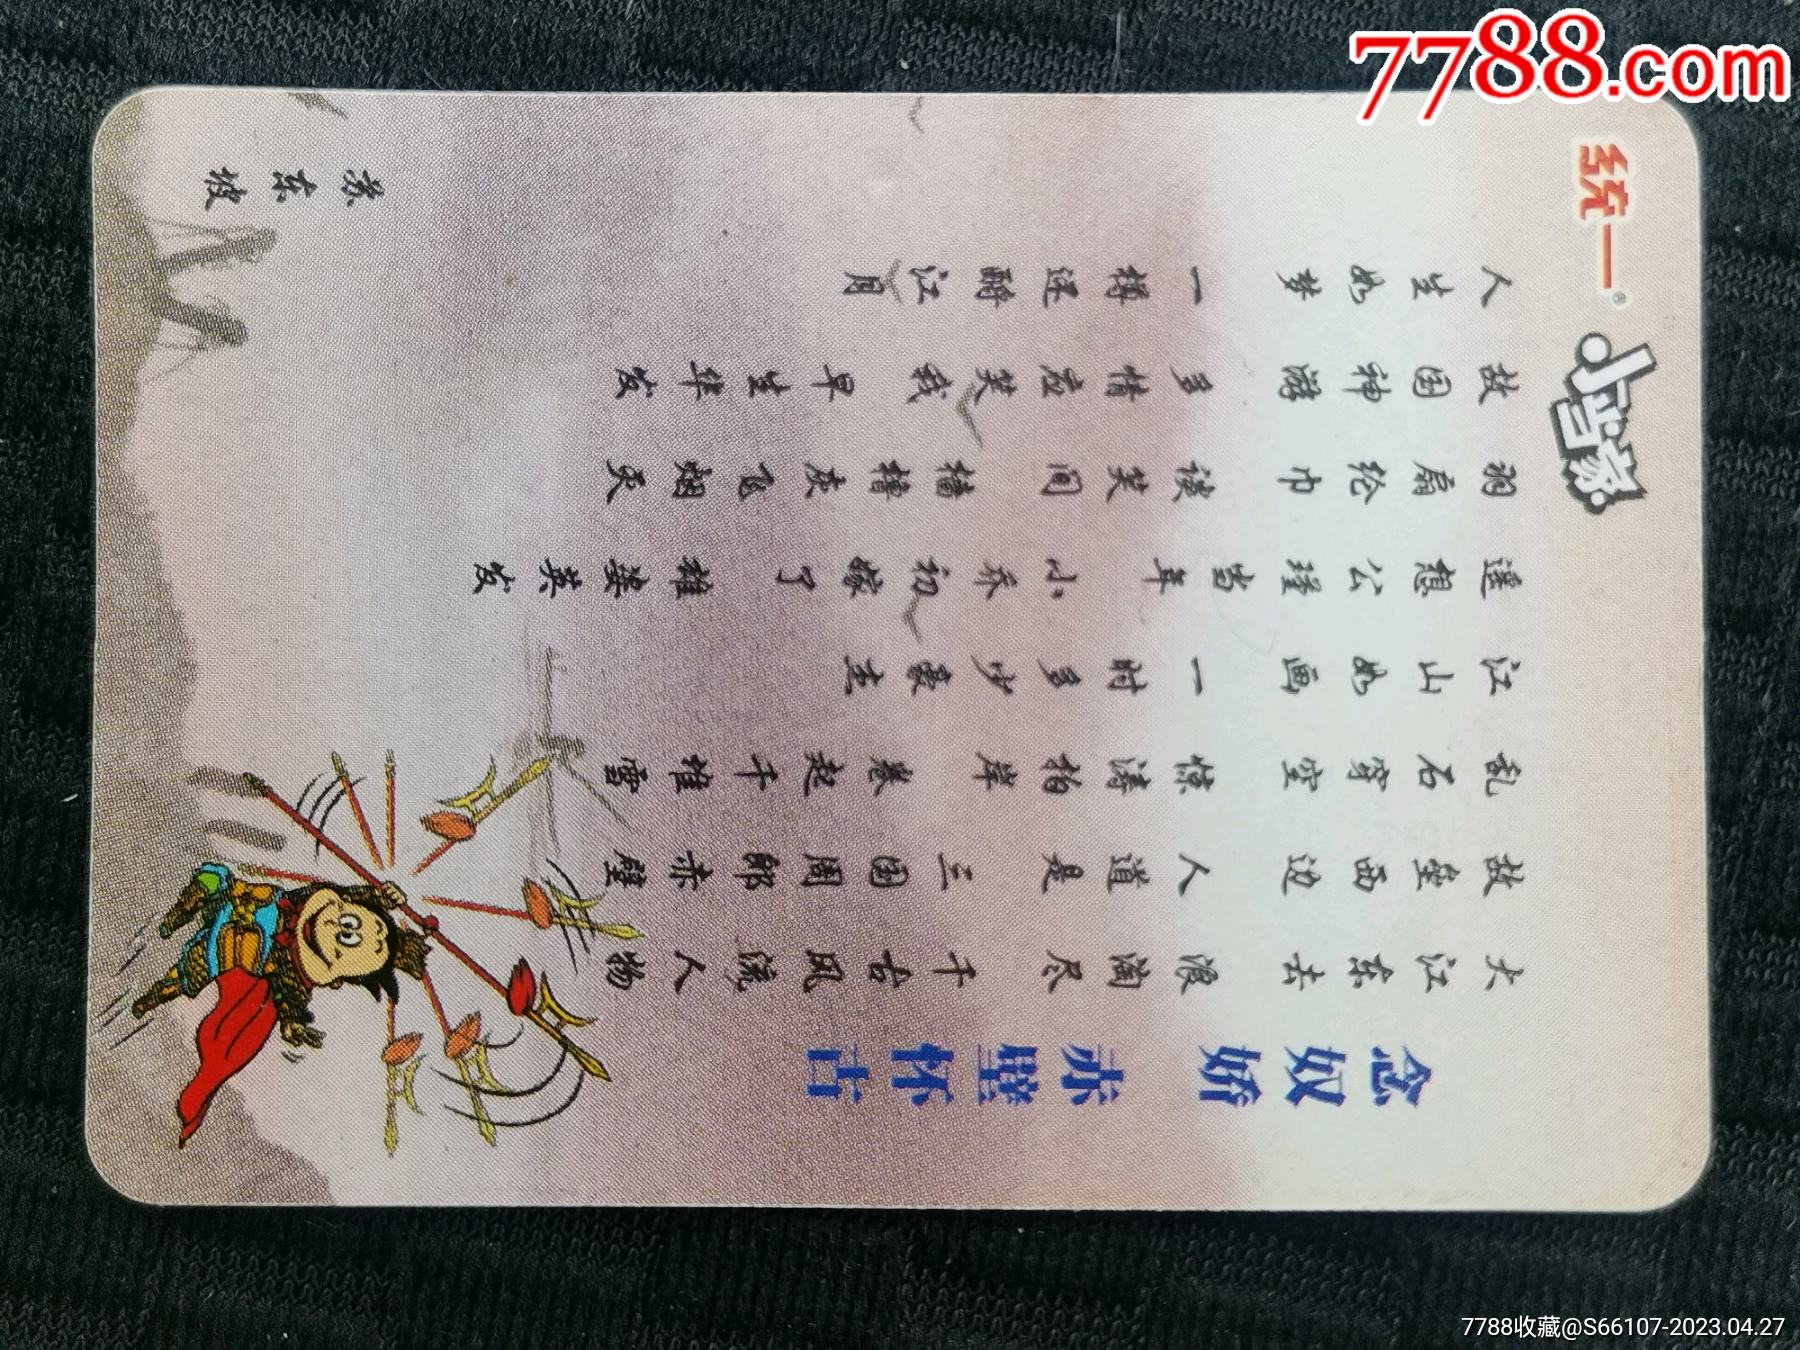 7788.com
统一®
小当家
念奴娇 赤壁怀古
大江东去 浪淘尽 千古风流人物
故垒西边 人道是 三国周郎赤壁
乱石穿空 惊涛拍岸 卷起千堆雪
江山如画 一时多少豪杰
遥想公瑾当年 小乔初嫁了 雄姿英发
羽扇纶巾 谈笑间 樯橹灰飞烟灭
故国神游 多情应笑我 早生华发
人生如梦 一樽还酹江月
苏东坡
7788收藏@S66107-2023.04.27